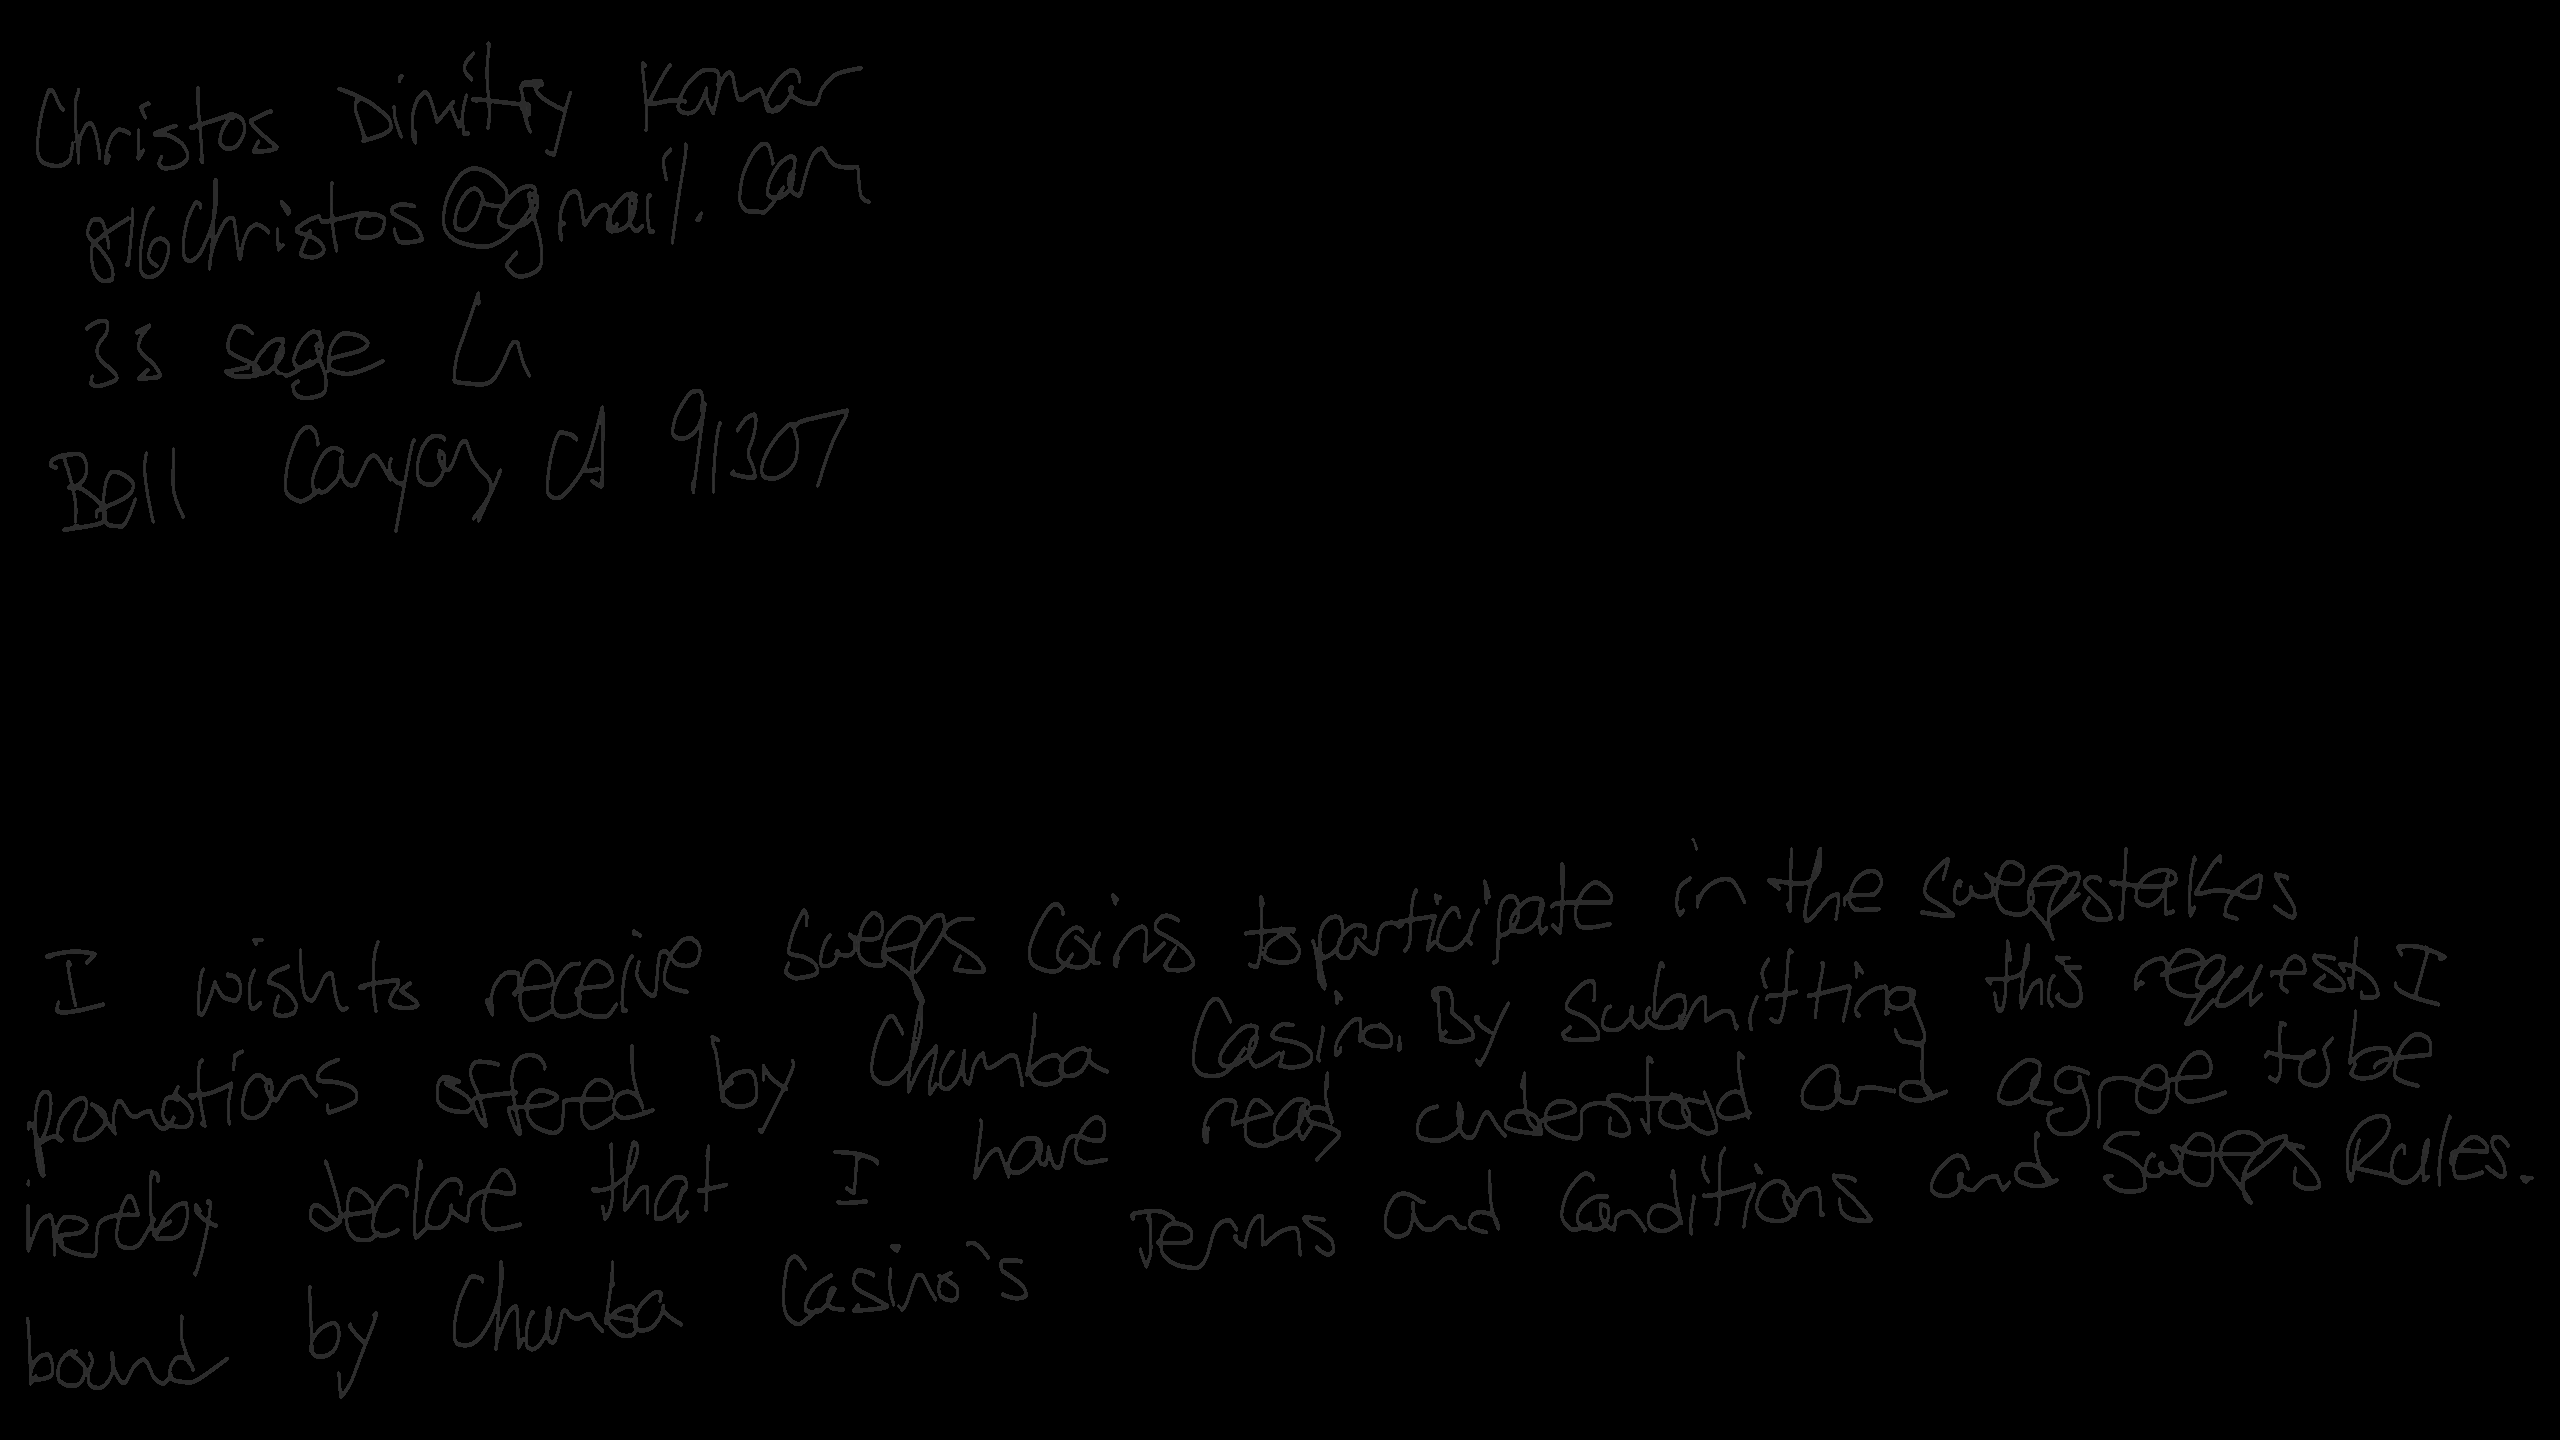 Christos Dimitry Kamar
816christos@gmail.com
33 sage Ln
Bell Canyon, CA 91307
I wish to receive sweeps Coins to participate in the sweepstakes
promotions offered by Chumba Casino. By Submitting this request, I
hereby declare that I have read, understood and agree to be
bound by Chumba Casino's Terms and Conditions and Sweeps Rules.